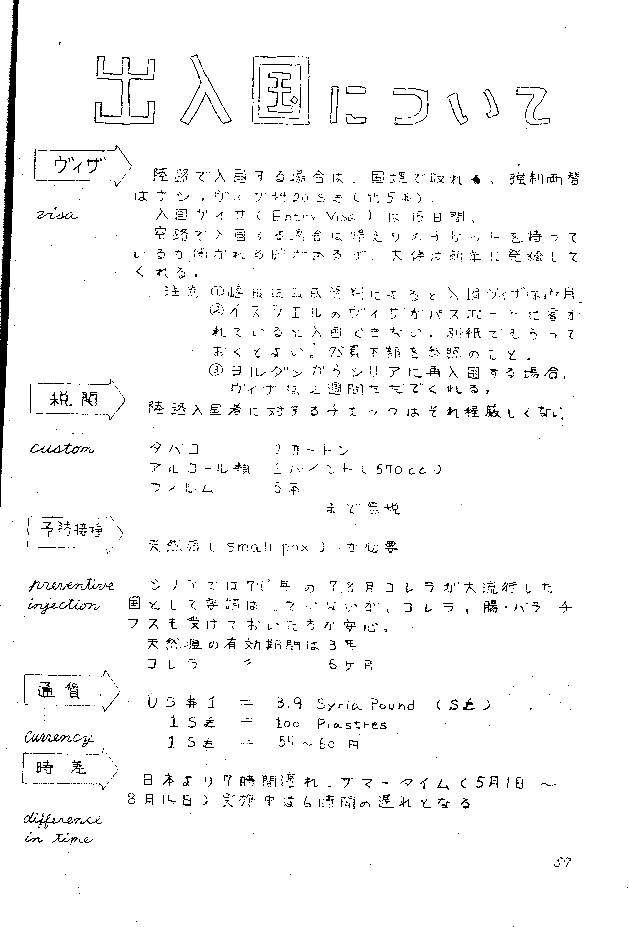 出入国について
ヴィザ
visa
陸路で入国する場合は、国境で取れ 、強制両替
入国ヴィザ ( Entry Visa ) は15日間。
空路で入国する場合は帰えりのチケットを持って
いるか聞かれる時があるが、大体は簡単に発給して
くれる。
注意 ① によると入国ヴィザは
②イスラエルのヴィザがパスポートに書か
れていると入国できない。別紙でもらって
おくとよい。 を参照のこと。
③ヨルダンからシリアに再入国する場合、
ヴィザは2週間ただでくれる。
税関
custom
陸路入国者に対するチェックはそれ程厳しくない
タバコ カートン
アルコール類 1パイント ( 570cc )
フィルム 5本
まで免税
予防接種
preventive
injection
天然痘 ( small pox ) が必要
シリアでは 年の7,8月コレラが大流行した
国として いないが、コレラ, 腸・パラ チ
フスも受けておいた方が安心。
天然痘の有効期間は3年
コレラ 〃 6ヶ月
通貨
currency
US$1 = 3.9 Syria Pound (S£)
1S£ = 100 Piastres
1S£ = 54〜60円
時差
difference
in time
日本より7時間遅れ、サマータイム(5月1日 〜
8月14日)実施中は6時間の遅れとなる